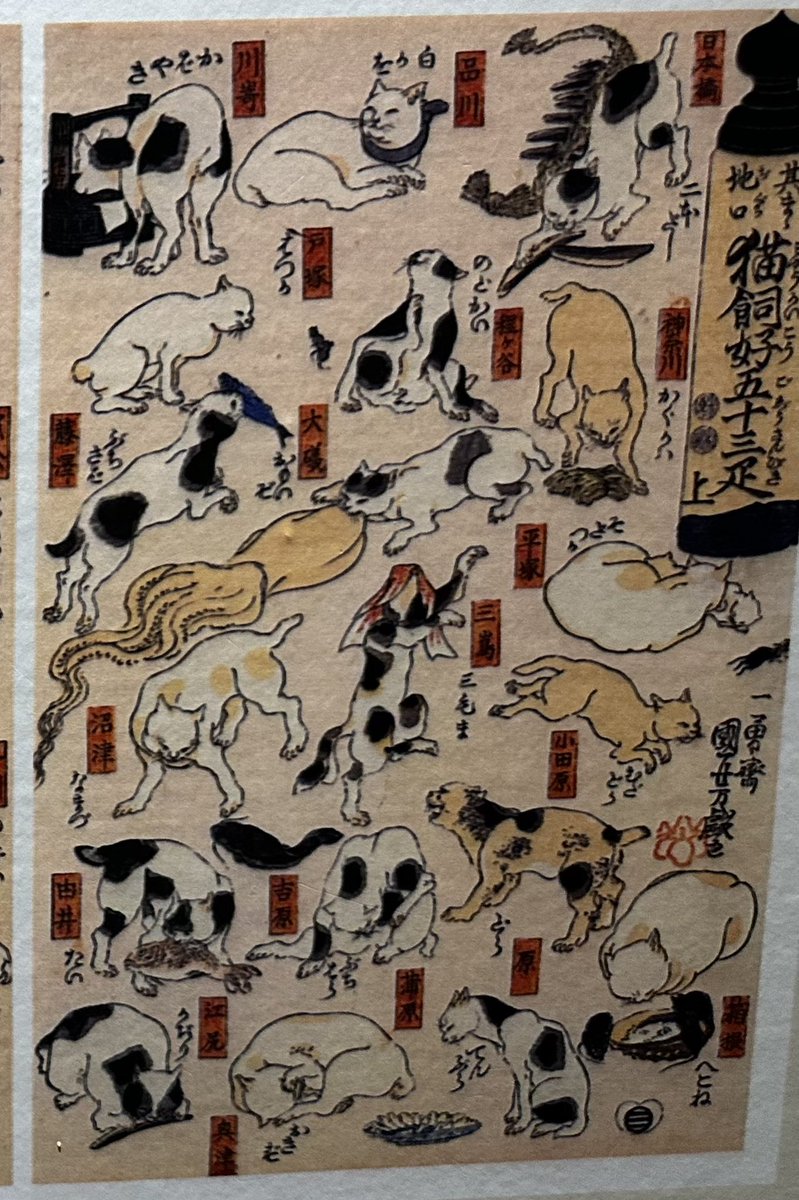 其まゝ地口
猫飼好五十三疋
上
日本橋
二本だし
品川
白かを
川嵜
かばやき
神奈川
かぐかハ
程ヶ谷
のどかい
戸塚
はつか
藤澤
ぶちさば
平塚
そだつか
大磯
おもいぞ
小田原
むだどら
箱根
へこね
三嶌
三毛ま
沼津
なまづ
原
どら
吉原
ぶちはら
蒲原
てんぷら
由井
たい
奥津
おきず
江尻
かじり
一勇齋
國芳万戯画